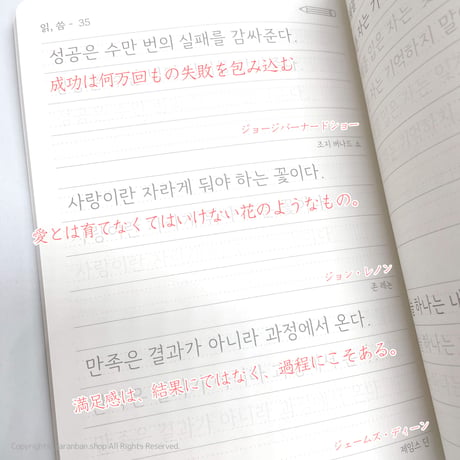 읽, 씀 - 35
성공은 수만 번의 실패를 감싸준다.
成功は何万回もの失敗を包み込む
ジョージバーナードショー
조지 버나드 쇼
사랑이란 자라게 둬야 하는 꽃이다.
愛とは育てなくてはいけない花のようなもの。
사랑이란 자라게
ジョン・レノン
존 레논
만족은 결과가 아니라 과정에서 온다.
満足感は、結果にではなく、過程にこそある。
만족은 결과가 아니라
ジェームス・ディーン
제임스 딘
aranban.shop All Rights Reserved.